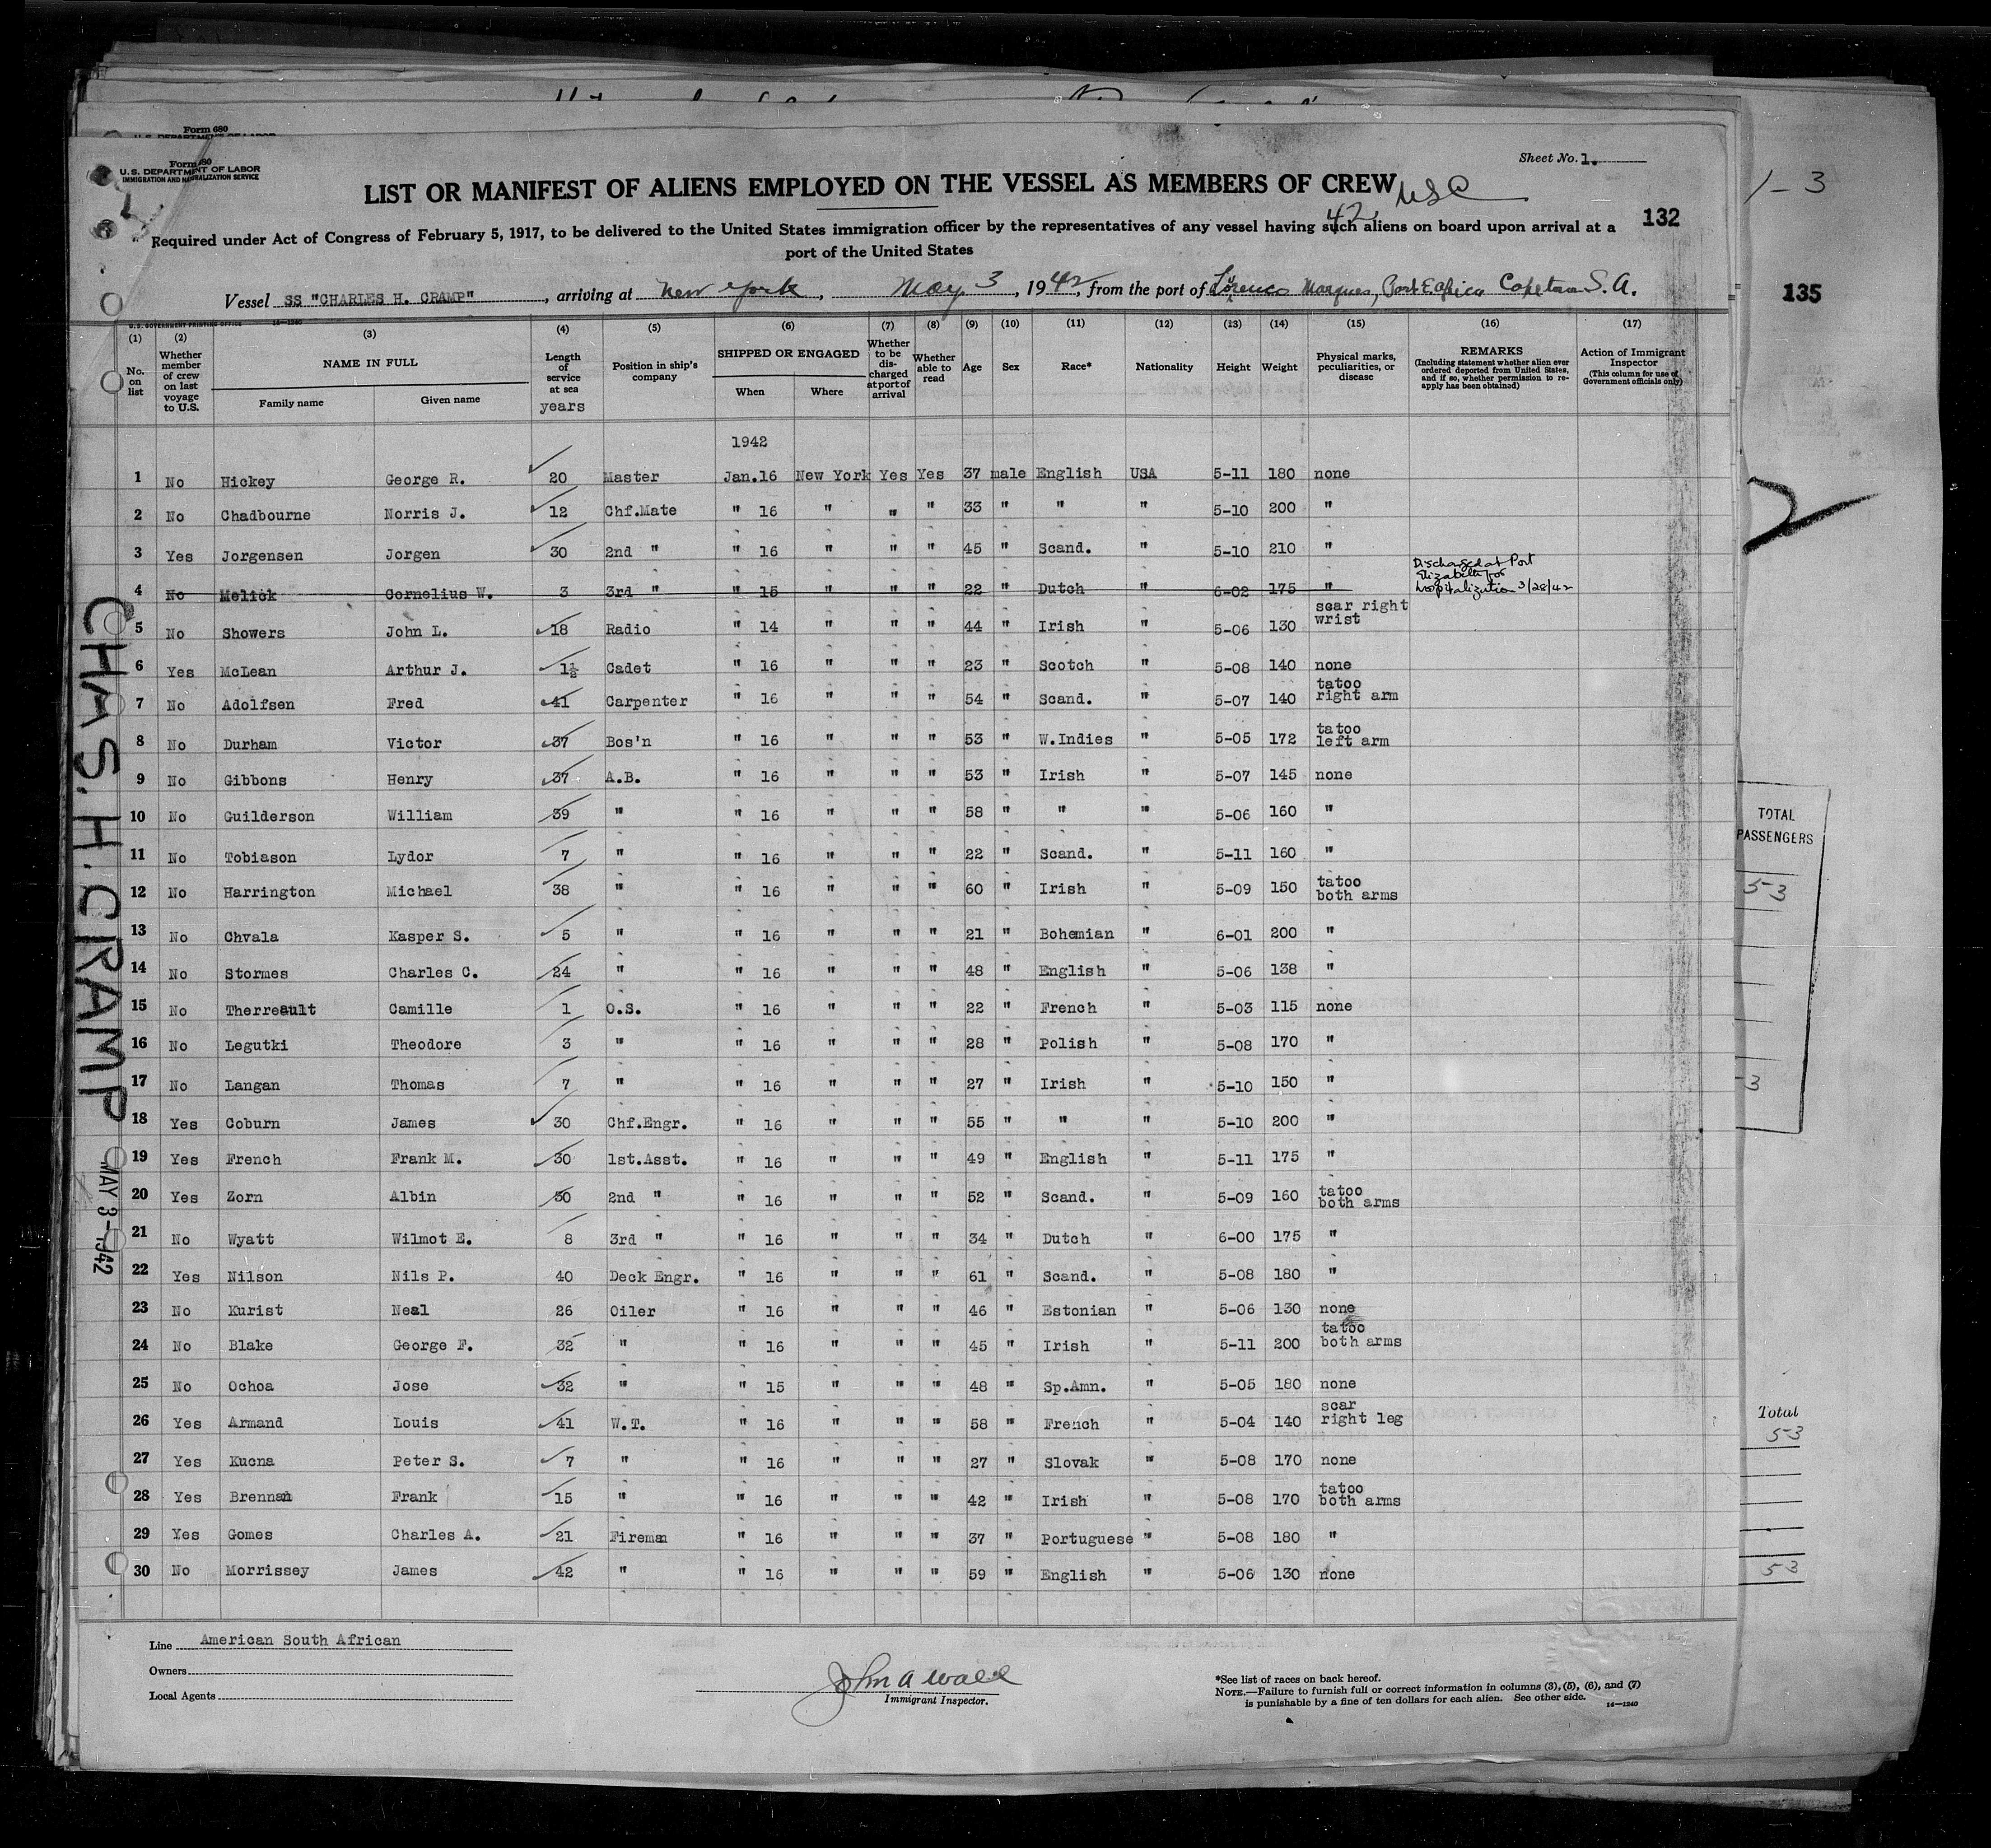 Form 680
Form 680
U.S. DEPARTMENT OF LABOR
IMMIGRATION AND NATURALIZATION SERVICE
Sheet No. 1.
LIST OR MANIFEST OF ALIENS EMPLOYED ON THE VESSEL AS MEMBERS OF CREW
1-3
42
132
Required under Act of Congress of February 5, 1917, to be delivered to the United States immigration officer by the representatives of any vessel having such aliens on board upon arrival at a
port of the United States
Vessel SS "CHARLES H. CRAMP", arriving at New York, May 3, 1942, from the port of Lorenco Marques, Port E. Africa Capetown S.A.
135
U.S. GOVERNMENT PRINTING OFFICE 14-1240
(1) (2) (3) (4) (5) (6) (7) (8) (9) (10) (11) (12) (13) (14) (15) (16) (17)
No. on list Whether member of crew on last voyage to U.S. NAME IN FULL Family name Given name Length of service at sea years Position in ship's company SHIPPED OR ENGAGED When Where Whether to be discharged at port of arrival Whether able to read Age Sex Race* Nationality Height Weight Physical marks, peculiarities, or disease REMARKS (Including statement whether alien ever ordered deported from United States, and if so, whether permission to reapply has been obtained) Action of Immigrant Inspector (This column for use of Government officials only)
1942
1 No Hickey George R. 20 Master Jan.16 New York Yes Yes 37 male English USA 5-11 180 none
2 No Chadbourne Norris J. 12 Chf.Mate " 16 " " " 33 " " " 5-10 200 "
3 Yes Jorgensen Jorgen 30 2nd " " 16 " " " 45 " Scand. " 5-10 210 "
4 No Melick Cornelius W. 3 3rd " " 15 " " " 22 " Dutch " 6-02 175 " Discharged at Port Elizabeth for hospitalization 3/28/42
5 No Showers John L. 18 Radio " 14 " " " 44 " Irish " 5-06 130 scar right wrist
6 Yes McLean Arthur J. 1½ Cadet " 16 " " " 23 " Scotch " 5-08 140 none
7 No Adolfsen Fred 41 Carpenter " 16 " " " 54 " Scand. " 5-07 140 tatoo right arm
8 No Durham Victor 37 Bos'n " 16 " " " 53 " W.Indies " 5-05 172 tatoo left arm
9 No Gibbons Henry 37 A.B. " 16 " " " 53 " Irish " 5-07 145 none
10 No Guilderson William 39 " " 16 " " " 58 " " " 5-06 160 "
11 No Tobiason Lydor 7 " " 16 " " " 22 " Scand. " 5-11 160 "
12 No Harrington Michael 38 " " 16 " " " 60 " Irish " 5-09 150 tatoo both arms
13 No Chvala Kasper S. 5 " " 16 " " " 21 " Bohemian " 6-01 200 "
14 No Stormes Charles C. 24 " " 16 " " " 48 " English " 5-06 138 "
15 No Therreault Camille 1 O.S. " 16 " " " 22 " French " 5-03 115 none
16 No Legutki Theodore 3 " " 16 " " " 28 " Polish " 5-08 170 "
17 No Langan Thomas 7 " " 16 " " " 27 " Irish " 5-10 150 "
18 Yes Coburn James 30 Chf.Engr. " 16 " " " 55 " " " 5-10 200 "
19 Yes French Frank M. 30 1st.Asst. " 16 " " " 49 " English " 5-11 175 "
20 Yes Zorn Albin 30 2nd " " 16 " " " 52 " Scand. " 5-09 160 tatoo both arms
21 No Wyatt Wilmot E. 8 3rd " " 16 " " " 34 " Dutch " 6-00 175 "
22 Yes Nilson Nils P. 40 Deck Engr. " 16 " " " 61 " Scand. " 5-08 180 "
23 No Kurist Neal 26 Oiler " 16 " " " 46 " Estonian " 5-06 130 none
24 No Blake George F. 32 " " 16 " " " 45 " Irish " 5-11 200 tatoo both arms
25 No Ochoa Jose 32 " " 15 " " " 48 " Sp.Amn. " 5-05 180 none
26 Yes Armand Louis 41 W.T. " 16 " " " 58 " French " 5-04 140 scar right leg
27 Yes Kucna Peter S. 7 " " 16 " " " 27 " Slovak " 5-08 170 none
28 Yes Brennan Frank 15 " " 16 " " " 42 " Irish " 5-08 170 tatoo both arms
29 Yes Gomes Charles A. 21 Fireman " 16 " " " 37 " Portuguese " 5-08 180 "
30 No Morrissey James 42 " " 16 " " " 59 " English " 5-06 130 none
CHAS. H. CRAMP MAY 3 - 1942
TOTAL
PASSENGERS
53
Total
53
53
Line American South African
Owners
Local Agents
John A Wall
Immigrant Inspector.
*See list of races on back hereof.
NOTE.—Failure to furnish full or correct information in columns (3), (5), (6), and (7)
is punishable by a fine of ten dollars for each alien. See other side. 14-1240